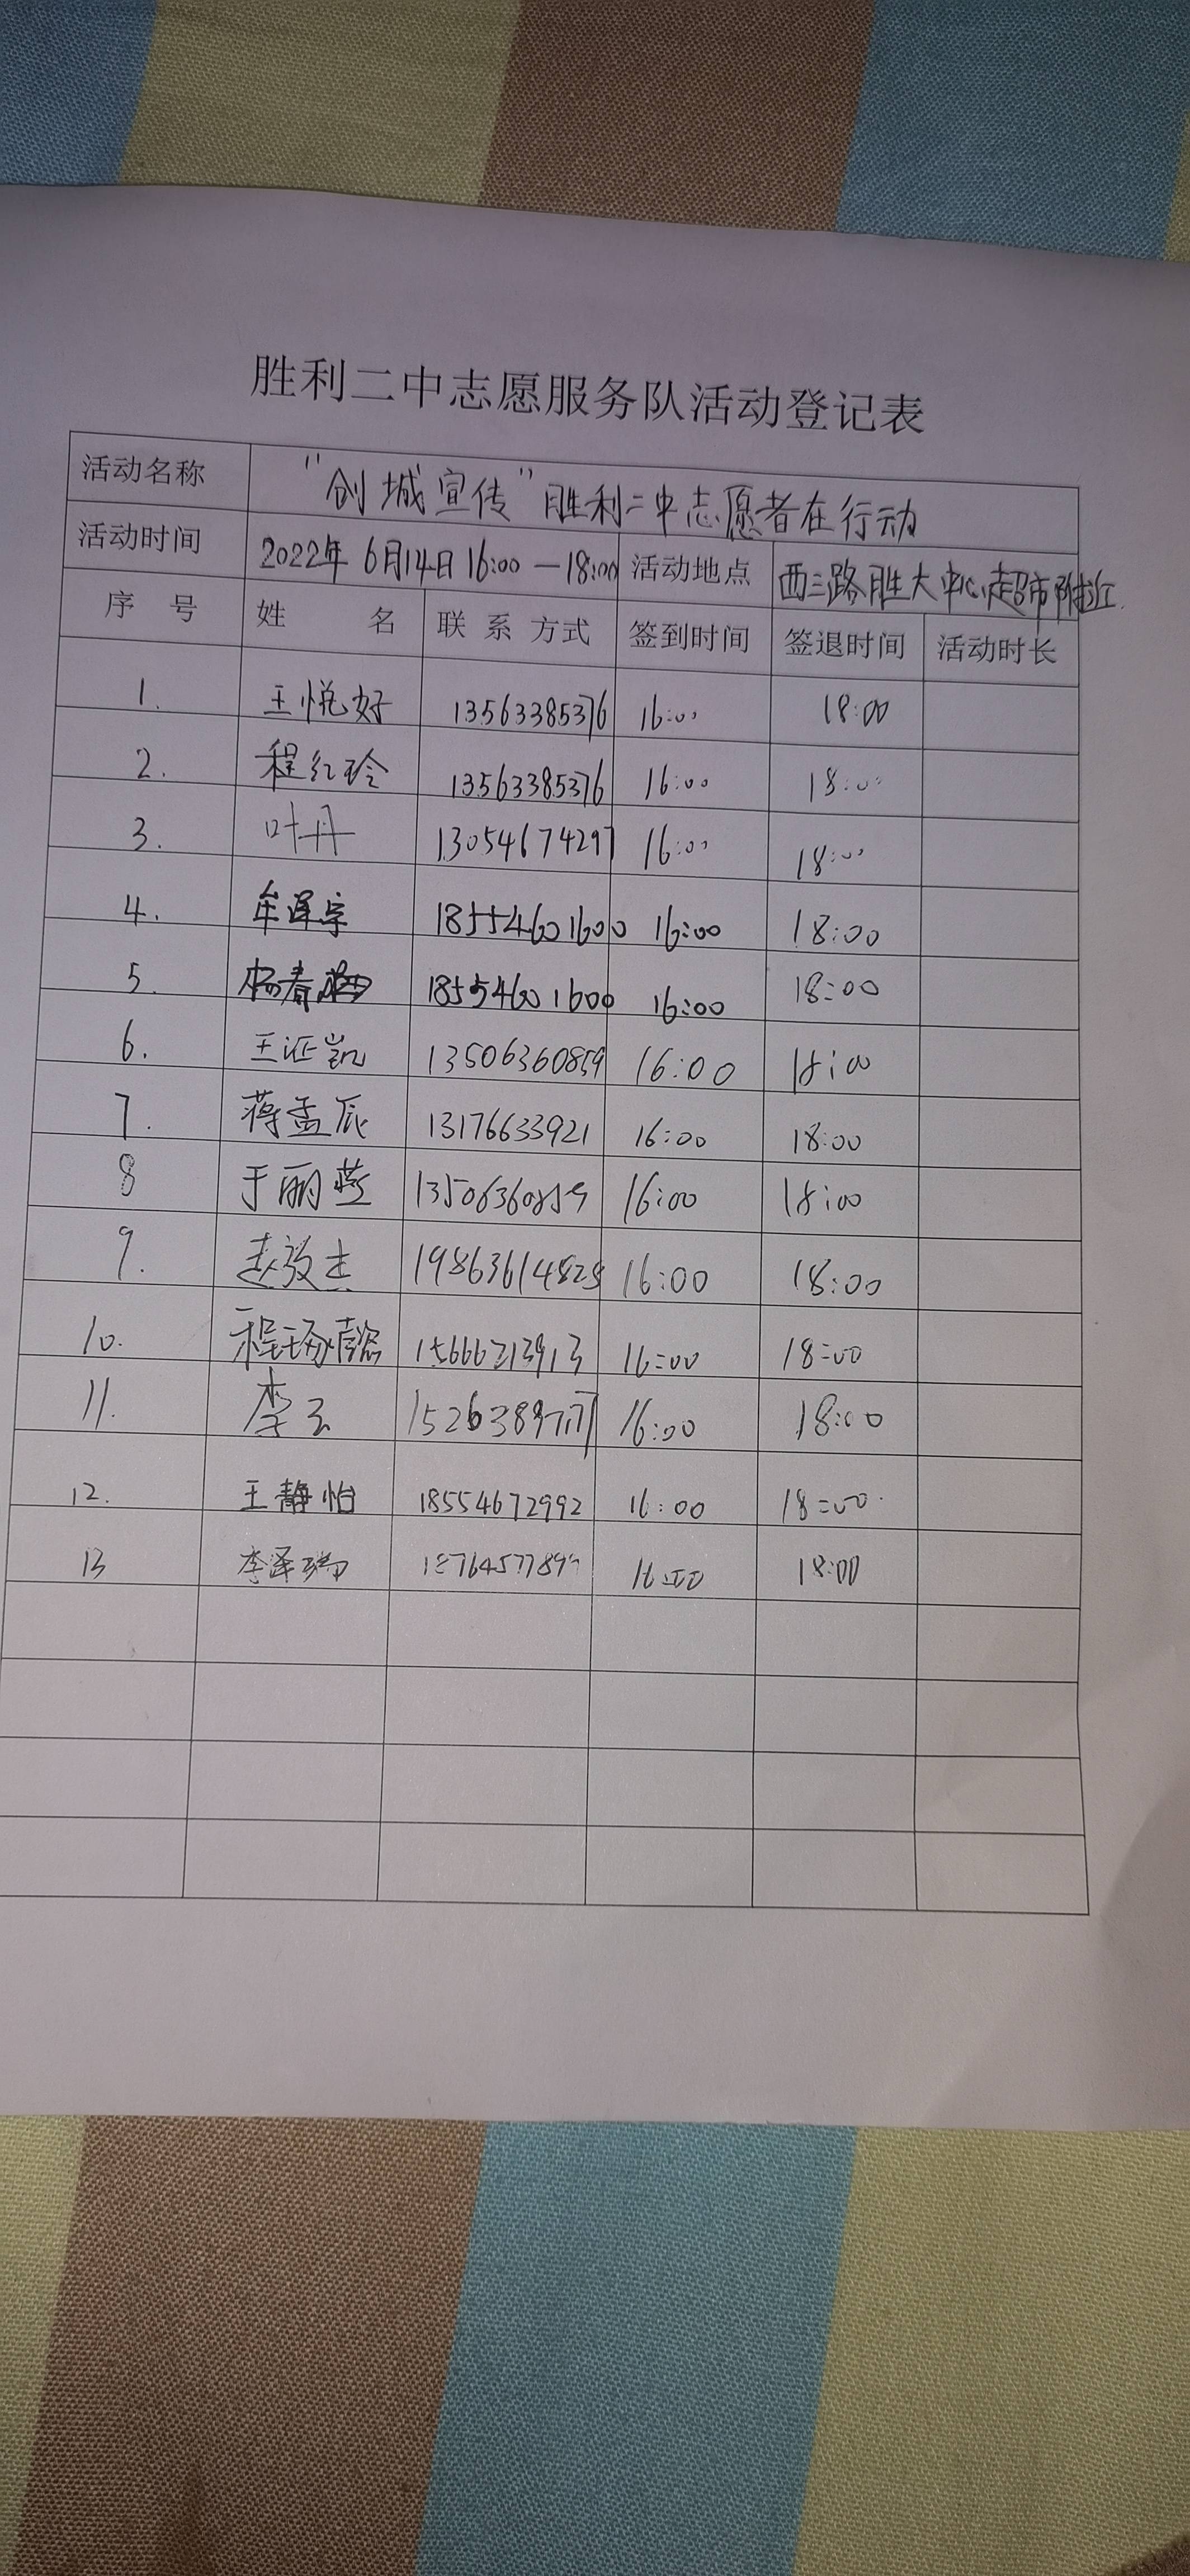 胜利二中志愿服务队活动登记表
活动名称 "创城宣传"胜利二中志愿者在行动
活动时间 2022年6月14日16:00—18:00 活动地点 西三路胜大中心超市附近
序号 姓名 联系方式 签到时间 签退时间 活动时长
1. 王悦好 13563385376 16:00 18:00
2. 程红玲 13563385376 16:00 18:00
3. 叶丹 13054674297 16:00 18:00
4. 牟泽宇 18554601600 16:00 18:00
5. 杨春梅 18554601600 16:00 18:00
6. 王证凯 13506360859 16:00 18:00
7. 蒋孟辰 13176633921 16:00 18:00
8 于丽燕 13506360859 16:00 18:00
9. 赵毅杰 19863614828 16:00 18:00
10. 程 15666213913 16:00 18:00
11. 李云 16:00 18:00
12. 王静怡 18554672992 16:00 18:00
13 李泽瑞 16:00 18:00